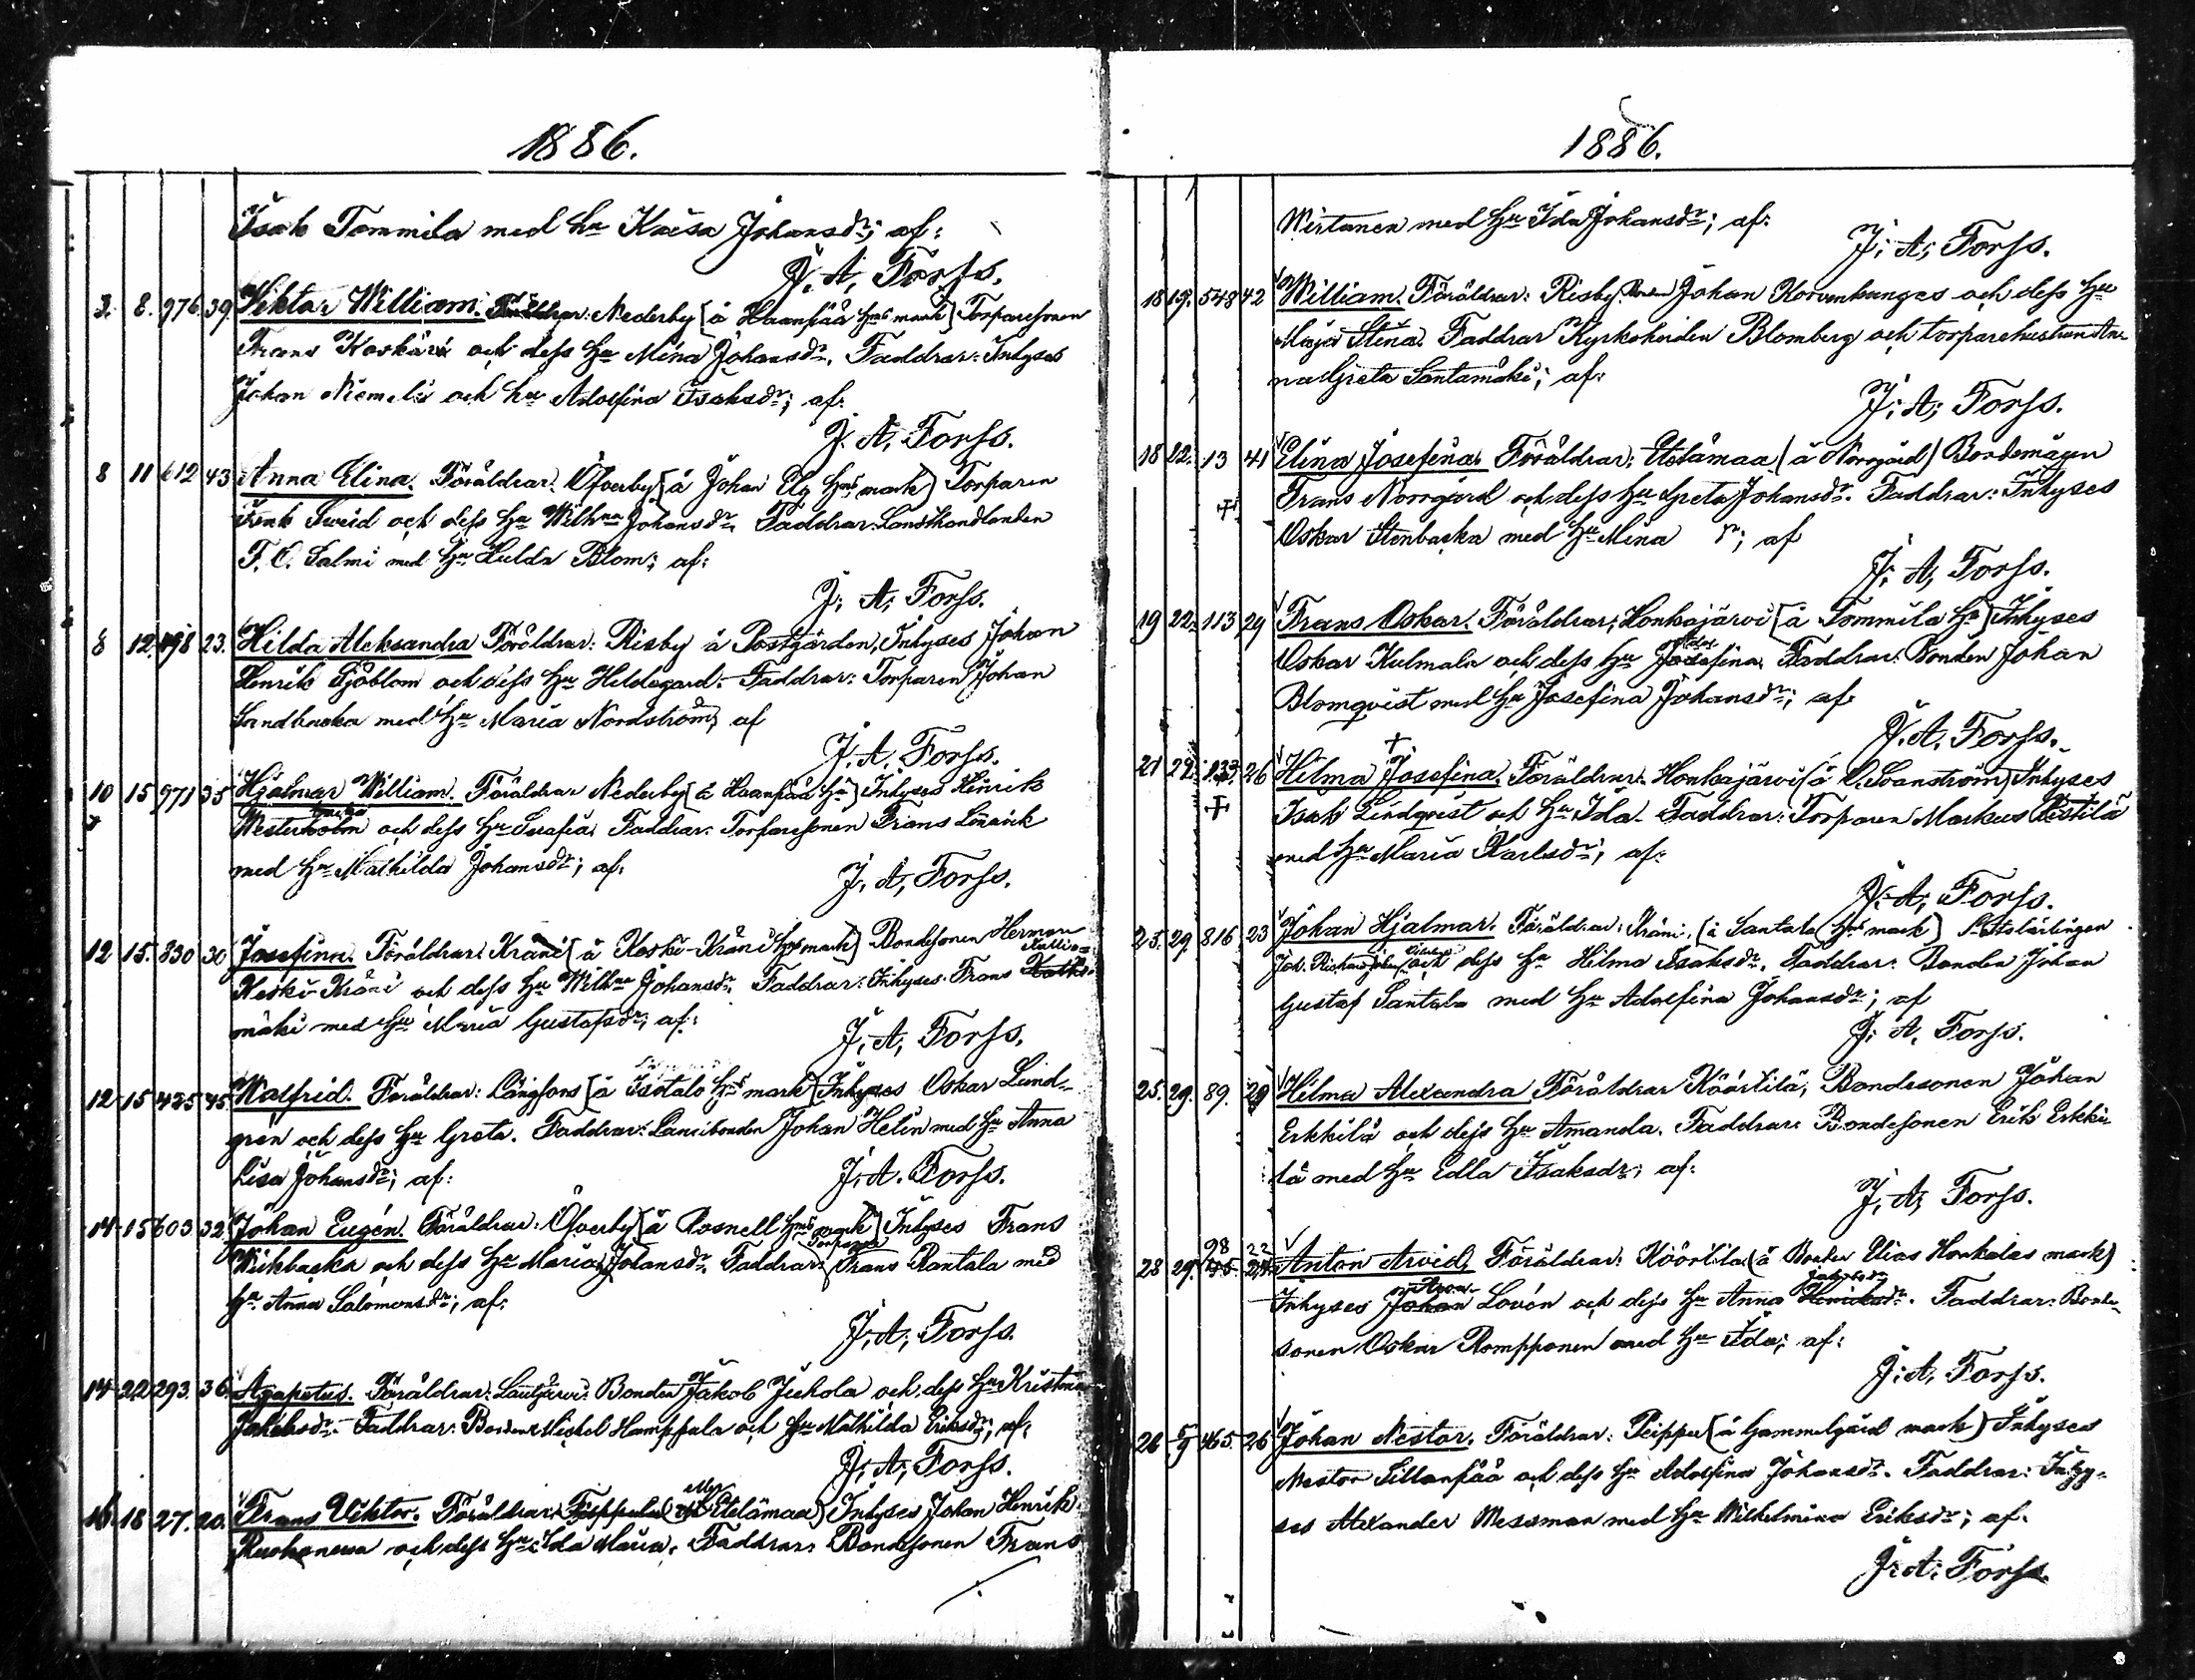 1886.
Isak Tommila med hu Kaisa Johansdr; af:
J. A. Forss.
3. 8. 976 39 Viktor William. Föräldrar: Nederby (å Haanpää hms mark) Torparesonen
Frans Koskäri och dess hu Mina Johansdr. Faddrar: Inhyses
Johan Niemelä och hu Adolfina Isaksdr; af:
J. A. Forss.
8 11 612 43 Anna Elina. Föräldrar: Öfverby (å Johan Elg hms mark) Torparen
Isak Sweid och dess hu Wilhna Johansdr. Faddrar: Landthandlanden
F. O. Salmi med hu Hulda Blom; af:
J. A. Forss.
8 12. 498 23. Hilda Aleksandra Föräldrar: Risby å Postgården, Inhyses Johan
Henrik Sjöblom och dess hu Hildegard. Faddrar: Torparen Johan
Sandbacka med hu Maria Nordström; af
J. A. Forss.
10 15 971 35 Hjalmar William. Föräldrar Nederby (å Haanpää hu) Inhyses Henrik
Westerholm och dess hu Serafia. Faddrar: Torparesonen Frans
med hu Mathilda Johansdr; af:
J. A. Forss.
12 15. 830 30 Josefina. Föräldrar: Kräni (å Keski-Kräni hms mark) Bondesonen Herman
Keski-Kräni och dess hu Wilhna Johansdr. Faddrar: Inhyses Frans Kallio-
mäki med hu Maria Gustafsdr; af:
J. A. Forss.
12 15 425 45 Walfrid. Föräldrar: Långfors (å Isotalo hms mark) Inhyses Oskar Lund-
gren och dess hu Greta. Faddrar: Landbonden Johan Helin med hu Anna
Lisa Johansdr; af:
J. A. Forss.
14 15 603 32 Johan Eugén. Föräldrar: Öfverby (å Rosnell hms mark) Inhyses Frans
Wikbacka och dess hu Maria Johansdr. Faddrar: Torparen Frans Rantala med
hu Anna Salomonsdr; af:
J. A. Forss.
14 22 293. 36. Agapetus. Föräldrar: Lautjärvi: Bonden Jakob Juhola och dess hu Kristina
Jakobsdr. Faddrar: Bonden Michel Hamppala och hu Mathilda Eriksdr; af:
J. A. Forss.
16 18 27. 20. Frans Viktor. Föräldrar: Etelämaa) Inhyses Johan Henrik
och dess hu Ida Maria. Faddrar: Bondesonen Frans
1886.
Wirtanen med hu Ida Johansdr; af:
J. A. Forss.
18 19. 548 42 William. Föräldrar: Risby, Bonden Johan Korvenkangas och dess hu
Maja Stina. Faddrar Kyrkoherden Blomberg och torparehustrun An-
na Greta Santamäki; af:
J. A. Forss.
18 22. 13 41 Elina Josefina. Föräldrar: Etelämaa (å Norrgård) Bondemågen
Frans Norrgård och dess hu Greta Johansdr. Faddrar: Inhyses
Oskar Stenbacka med hu Mina dr; af
J. A. Forss.
19 22. 113 29 Frans Oskar. Föräldrar: Honkajärvi (å Tommila hu) Inhyses
Oskar Kulmala och dess hu Josefina. Faddrar: Bonden Johan
Blomqvist med hu Josefina Johansdr; af:
J. A. Forss.
21 22. 133 26 Hilma Josefina. Föräldrar: Honkajärvi (å Svanström) Inhyses
Isak Lindqvist och hu Ida. Faddrar: Torparen Markus Ristilä
med hu Maria Karlsdr; af:
J. A. Forss.
25. 29 816 23 Johan Hjalmar. Föräldrar: Kräni, (å Santala hms mark)
och dess hu Hilma Isaksdr. Faddrar: Bonden Johan
Gustaf Santala med hu Adolfina Johansdr; af
J. A. Forss.
25. 29. 89. 29 Hilma Alexandra Föräldrar Köörtilä, Bondesonen Johan
Erkkilä och dess hu Amanda. Faddrar: Bondesonen Erik Erkki-
lä med hu Edla Isaksdr; af:
J. A. Forss.
28 29. 98 Anton Arvid. Föräldrar: Köörtilä (å Bonden Elias Honkalas mark)
Inhyses Johan Lovén och dess hu Anna Henriksdr. Faddrar: Bonde-
sonen Oskar Romppanen med hu Ida; af:
J. A. Forss.
26 5/9 465. 26 Johan Nestor. Föräldrar: Peippu (å Gammelgård mark) Inhyses
Nestor Sillanpää och dess hu Adolfina Johansdr. Faddrar: Inhy-
ses Alexander Messman med hu Wilhelmina Eriksdr; af:
J. A. Forss.